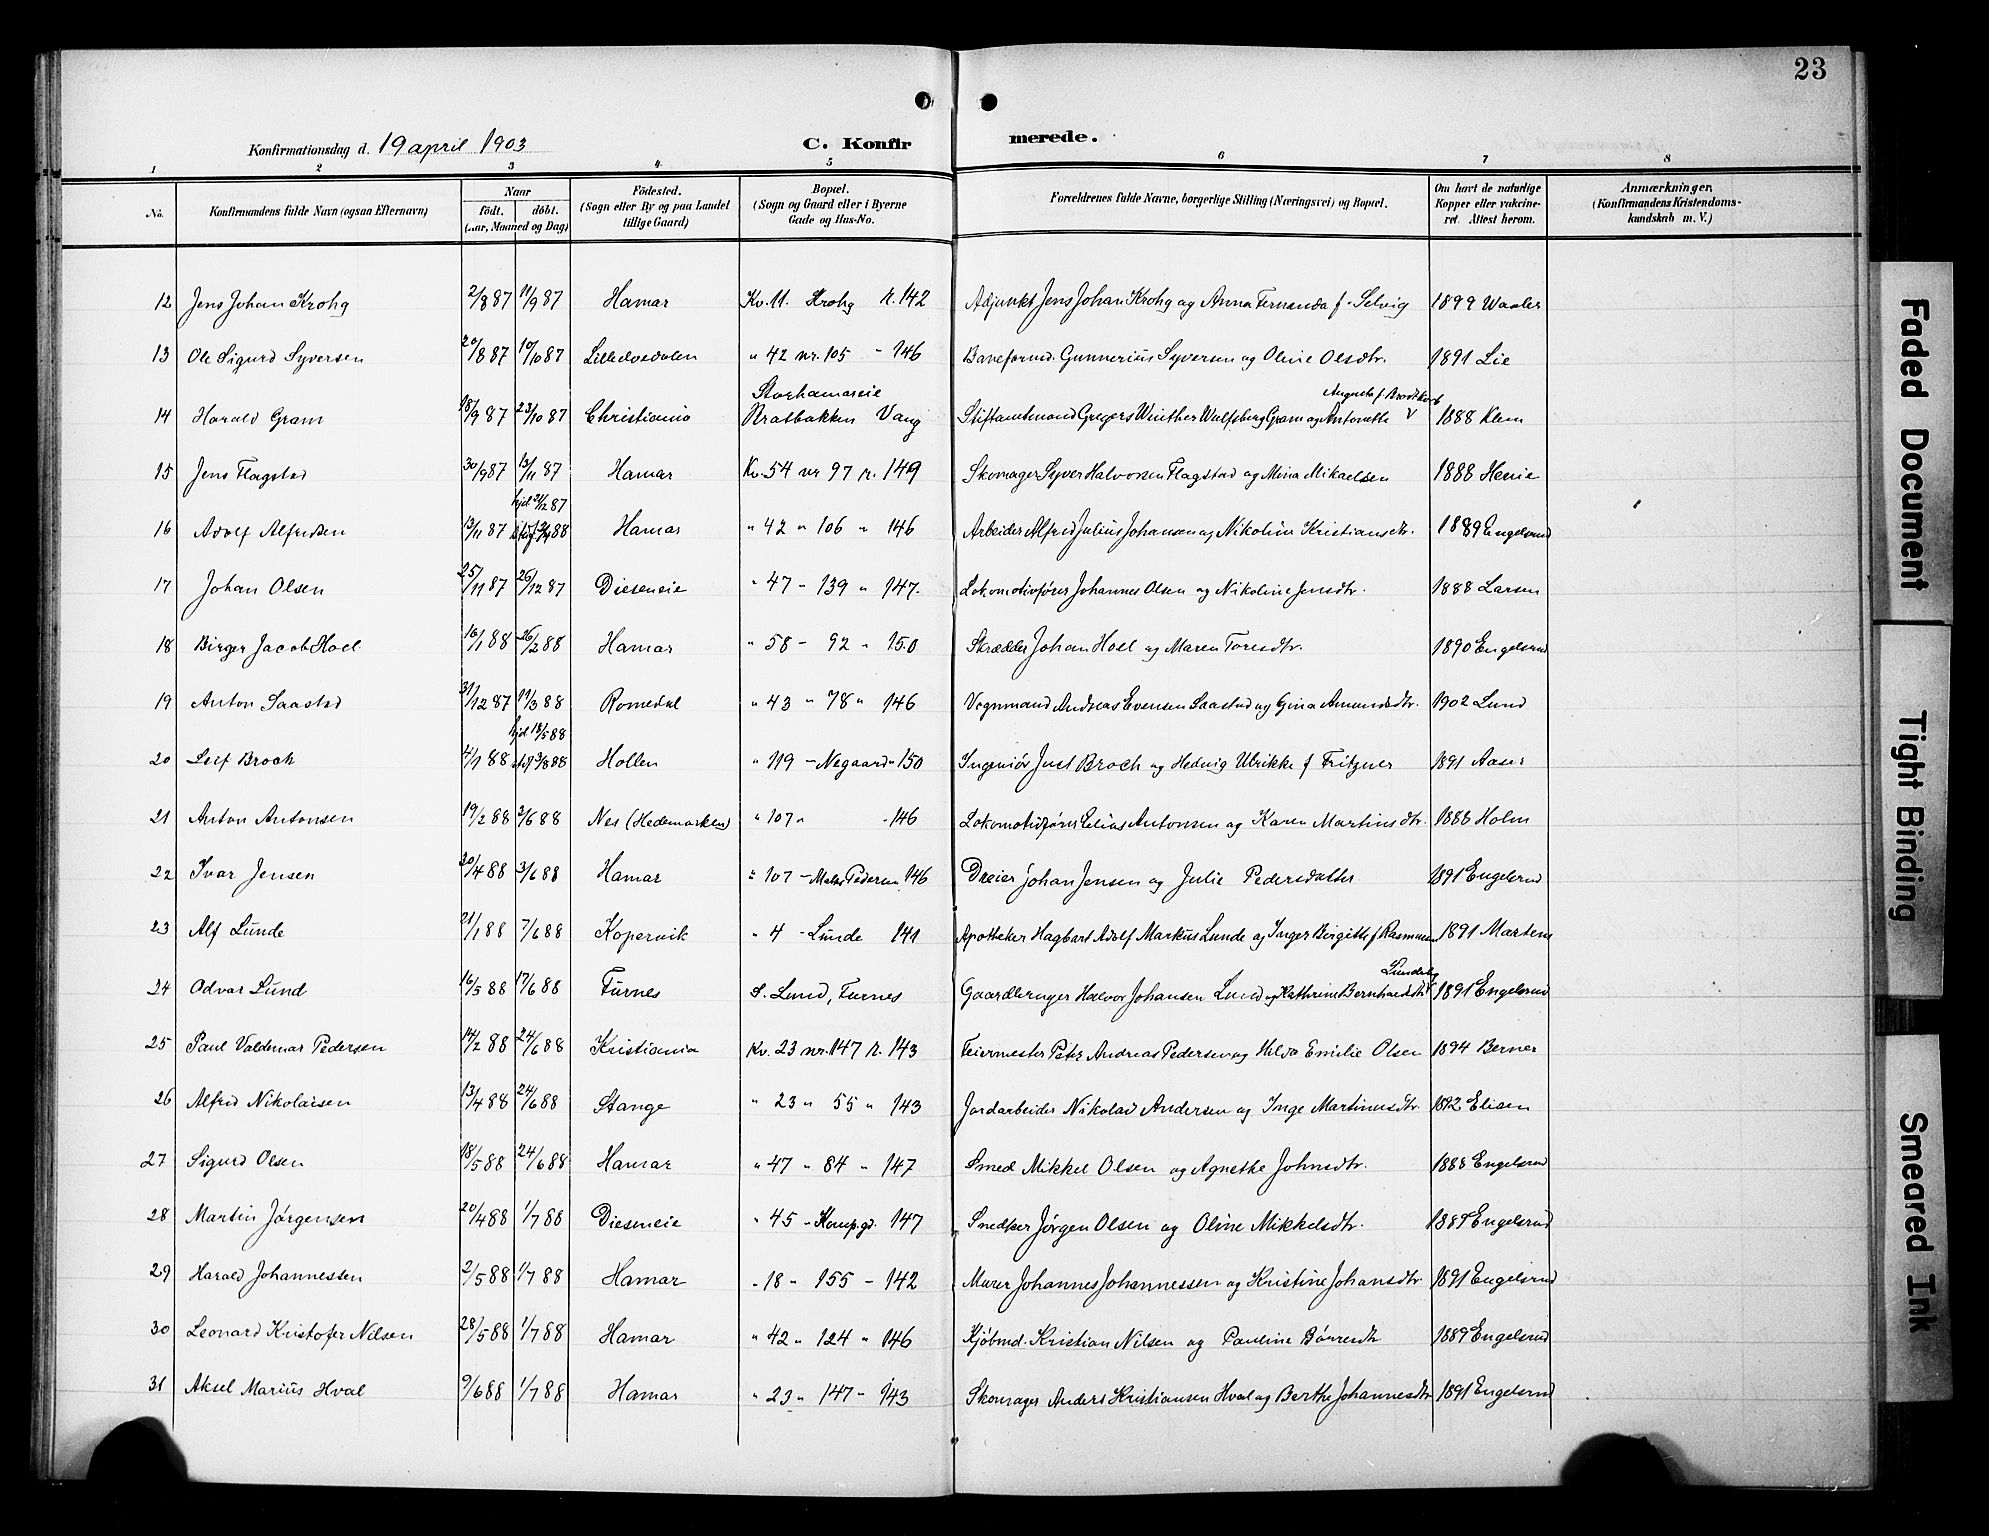 23
Konfirmationsdag d. 19 april 1903 C. Konfirmerede.
1 2 3 4 5 6 7 8
No. Konfirmandens fulde Navn (ogsaa Efternavn) Naar født. døbt. (Aar, Maaned og Dag) Fødested. (Sogn eller By og paa Landet tillige Gaard) Bopæl. (Sogn og Gaard eller i Byerne Gade og Hus-No. Forældrenes fulde Navne, borgerlige Stilling (Næringsvei) og Bopæl. Om havt de naturlige Kopper eller vakcineret. Attest herom. Anmærkninger. (Konfirmandens Kristendomskundskab m. V.)
12 Jens Johan Krohg 2/8 87 11/9 87 Hamar Kv. 11. Krohg r. 142 Adjunkt Jens Johan Krohg og Anna Fernanda f. Selvig 1899 Waaler
13 Ole Sigurd Syversen 20/8 87 10/10 87 Lilleelvedalen " 42 nr. 105 - 146 Baneformd. Gunnerius Syversen og Oline Olsdtr. 1891 Lie
14 Harald Gram 18/9 87 23/10 87 Christiania Storhamareie Bratbakken Vang Stiftamtmand Gregers Winther Wulfsberg Gram og Antonette Augusta f Brodtkorb 1888 Klem
15 Jens Flagstad 30/9 87 13/11 87 Hamar Kv. 54 nr 97 r. 149 Skomager Syver Halvorsen Flagstad og Mina Mikaelsen 1888 Henie
16 Adolf Alfredsen 13/11 87 hjd 21/12 87 88 Hamar " 42 " 106 " 146 Arbeider Alfred Julius Johansen og Nikoline Kristiansdtr. 1889 Engelsrud
17 Johan Olsen 25/11 87 26/12 87 Dieseneie " 47 - 139 " 147. Lokomotivfører Johannes Olsen og Nikoline Jensdtr. 1888 Larsen
18 Birger Jacob Hoel 16/1 88 26/2 88 Hamar " 58 - 92 " 150 Skrædder Johan Hoel og Maren Toresdtr. 1890 Engelsrud
19 Anton Saastad 31/12 87 11/3 88 Romedal " 43 " 78 " 146 Vognmand Andreas Evensen Saastad og Gina Amundsdtr. 1902 Lund
20 Leif Broch 4/1 88 hjd 18/5 88 3/8 88 Hollen " 119 - Negaard " 150 Ingeniør Just Broch og Hedvig Ulrikke f Fritzner 1891 Aaser
21 Anton Antonsen 19/2 88 3/6 88 Nes (Hedemarken) " 107 " - 146 Lokomotivfører Elias Antonsen og Karen Martinsdtr. 1888 Holm
22 Ivar Jensen 30/4 88 3/6 88 Hamar " 107 - Maler Pedersen 146 Dreier Johan Jensen og Julie Pedersdatter 1891 Engelsrud
23 Alf Lunde 21/1 88 7/6 88 Kopervik " 4 - Lunde 141 Apotheker Hagbart Adolf Markus Lunde og Inger Birgitte f Rasmussen 1891 Martens
24 Odvar Lund 16/5 88 17/6 88 Furnes S. Lund, Furnes Gaardbruger Halvor Johansen Lund og Kathrine Bernhardsdtr Lundeby 1891 Engelsrud
25 Paul Valdemar Pedersen 14/2 88 24/6 88 Kristiania Kv. 23 nr. 147 r. 143 Feiermester Petr Andreas Pedersen og Hilda Emilie Olsen 1894 Berner
26 Alfred Nikolaisen 13/4 88 24/6 88 Stange " 23 " 55 " 143 Jordarbeider Nikolai Andersen og Inge Martinusdtr. 1892 Elisen
27 Sigurd Olsen 18/5 88 24/6 88 Hamar " 47 " 84 " 147 Smed Mikkel Olsen og Agnethe Johnsdtr. 1888 Engelsrud
28 Martin Jørgensen 20/4 88 1/7 88 Dieseneie " 45 - Komp.gd. 147 Smedker Jørgen Olsen og Oline Mikkelsdtr. 1889 Engelsrud
29 Harald Johannessen 2/5 88 1/7 88 Hamar " 18 " 155 - 142 Murer Johannes Johannessen og Kristine Johansdtr. 1891 Engelsrud
30 Leonard Kristofer Nilsen 28/5 88 1/7 88 Hamar " 42 " 124 " 146 Kjøbmd. Kristian Nilsen og Pauline Børresdtr 1889 Engelsrud
31 Aksel Marius Hval 9/6 88 1/7 88 Hamar " 23 " 147 - 143 Skomager Anders Kristiansen Hval og Berthe Johannesdtr 1891 Engelsrud
Faded Document
Tight Binding
Smeared Ink